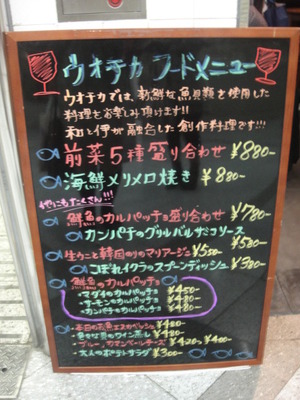 ウオチカ フードメニュー
ウオチカでは、新鮮な魚貝類を使用した
料理をお楽しみ頂けます!!
和と伊が融合した創作料理です!!!
前菜5種盛り合わせ ¥880-
海鮮メリメロ焼き ¥880-
他にもたくさん!!!
鮮魚のカルパッチョ盛り合わせ ¥780-
カンパチのグリル バルサミコソース ¥580-
生うにと韓国のりのマリアージュ ¥550-
こぼれイクラのスプーンディッシュ ¥380-
鮮魚のカルパッチョ
・マダイのカルパッチョ ¥450-
・サーモンのカルパッチョ ¥480-
・カンパチのカルパッチョ ¥480-
本日のお魚エスカベッシュ ¥480-
ブルーカマンベールチーズ ¥420- ¥400-
大人のポテトサラダ ¥300-